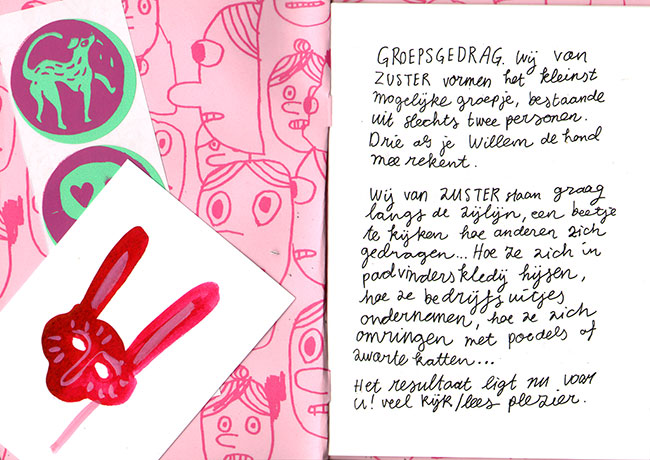 GROEPSGEDRAG. Wij van
ZUSTER vormen het kleinst
mogelijke groepje, bestaande
uit slechts twee personen.
Drie als je Willem de hond
mee rekent.
Wij van ZUSTER staan graag
langs de zijlijn, een beetje
te kijken hoe anderen zich
gedragen... Hoe ze zich in
padvinderskledij hijsen,
hoe ze bedrijfsuitjes
ondernemen, hoe ze zich
omringen met poedels of
zwarte katten...
Het resultaat ligt nu voor
u! veel kijk/lees plezier.